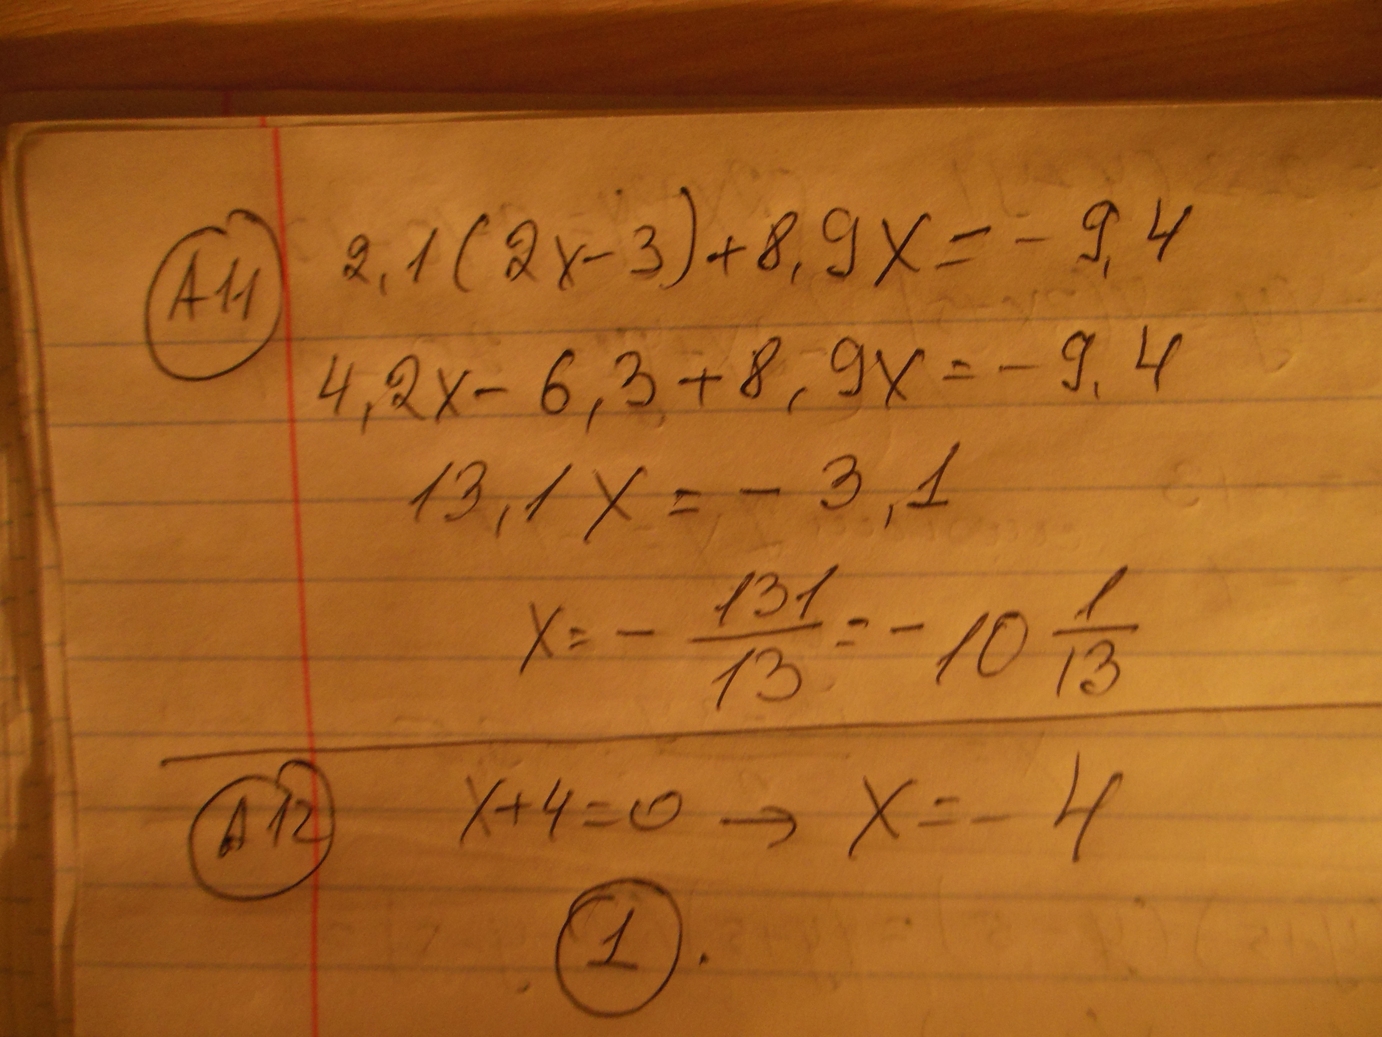 A11 2,1(2x-3)+8,9x=-9,4
4,2x-6,3+8,9x=-9,4
13,1x=-3,1
x=-131/13=-10 1/13
A12 x+4=0 → x=-4
1.